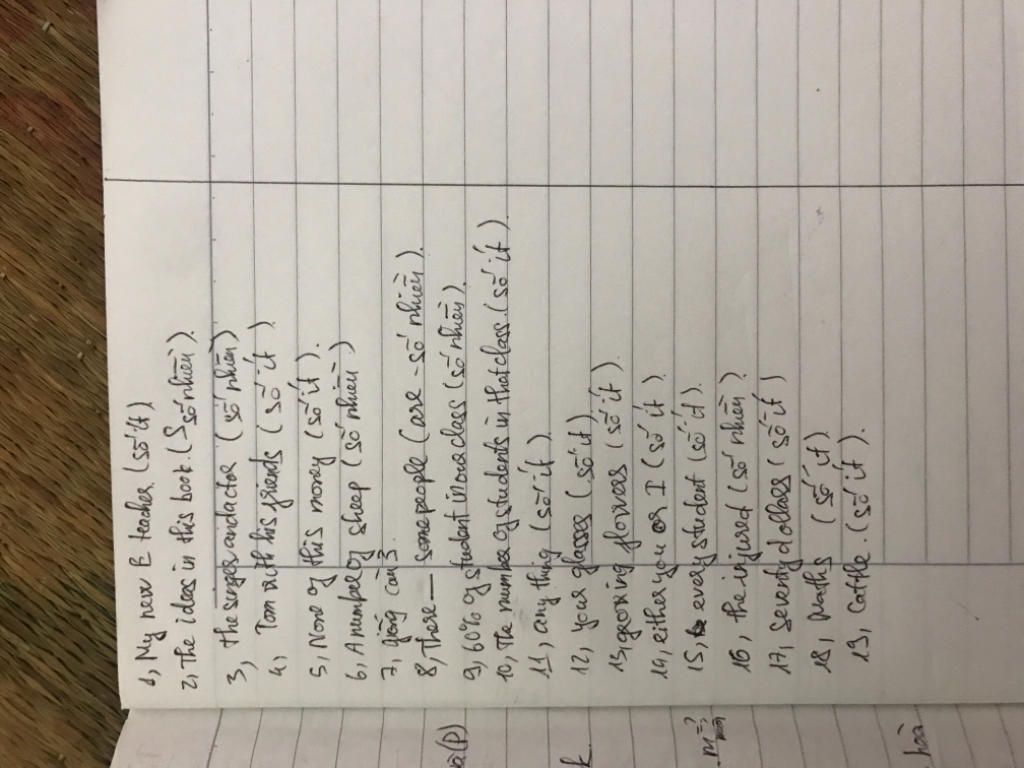 1, My new E teacher (số ít)
2, The ideas in this book. (S số nhiều).
3, the singer and actor (số nhiều)
4, Tom with his friends (số ít)
5, None of this money (số ít).
6, A number of sheep (số nhiều)
7, giống câu 3.
8, There — some people (are - số nhiều).
9, 60% of student in our class (số nhiều).
10, The number of students in that class. (số ít)
11, any thing (số ít)
12, your glasses (số ít)
13, growing flowers (số ít).
14, either you or I (số ít).
15, every student (số ít).
16, the injured (số nhiều).
17, seventy dollars (số ít)
18, Maths (số ít)
19, Cattle. (số ít).
(P)
k.
hoà